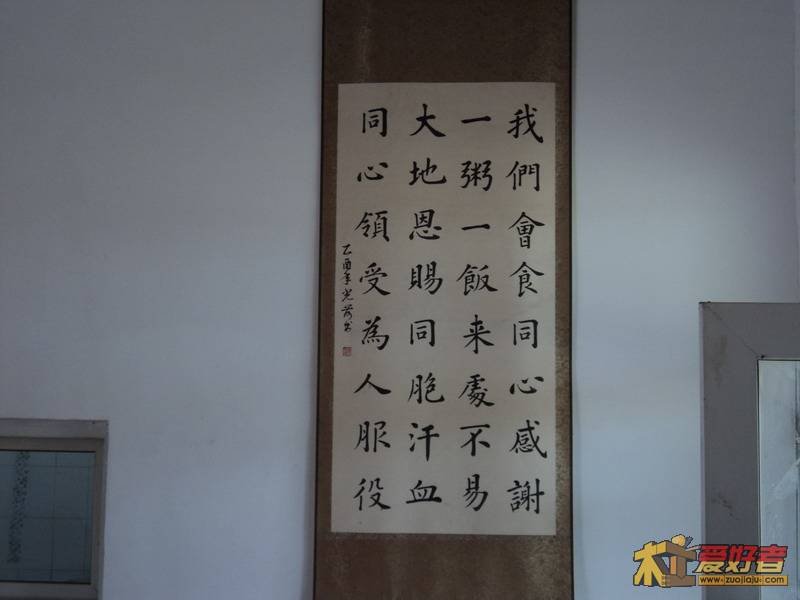 我們會食同心感謝
一粥一飯来處不易
大地恩賜同胞汗血
同心領受為人服役
乙酉年光
爱好者
www.zuojiaju.com